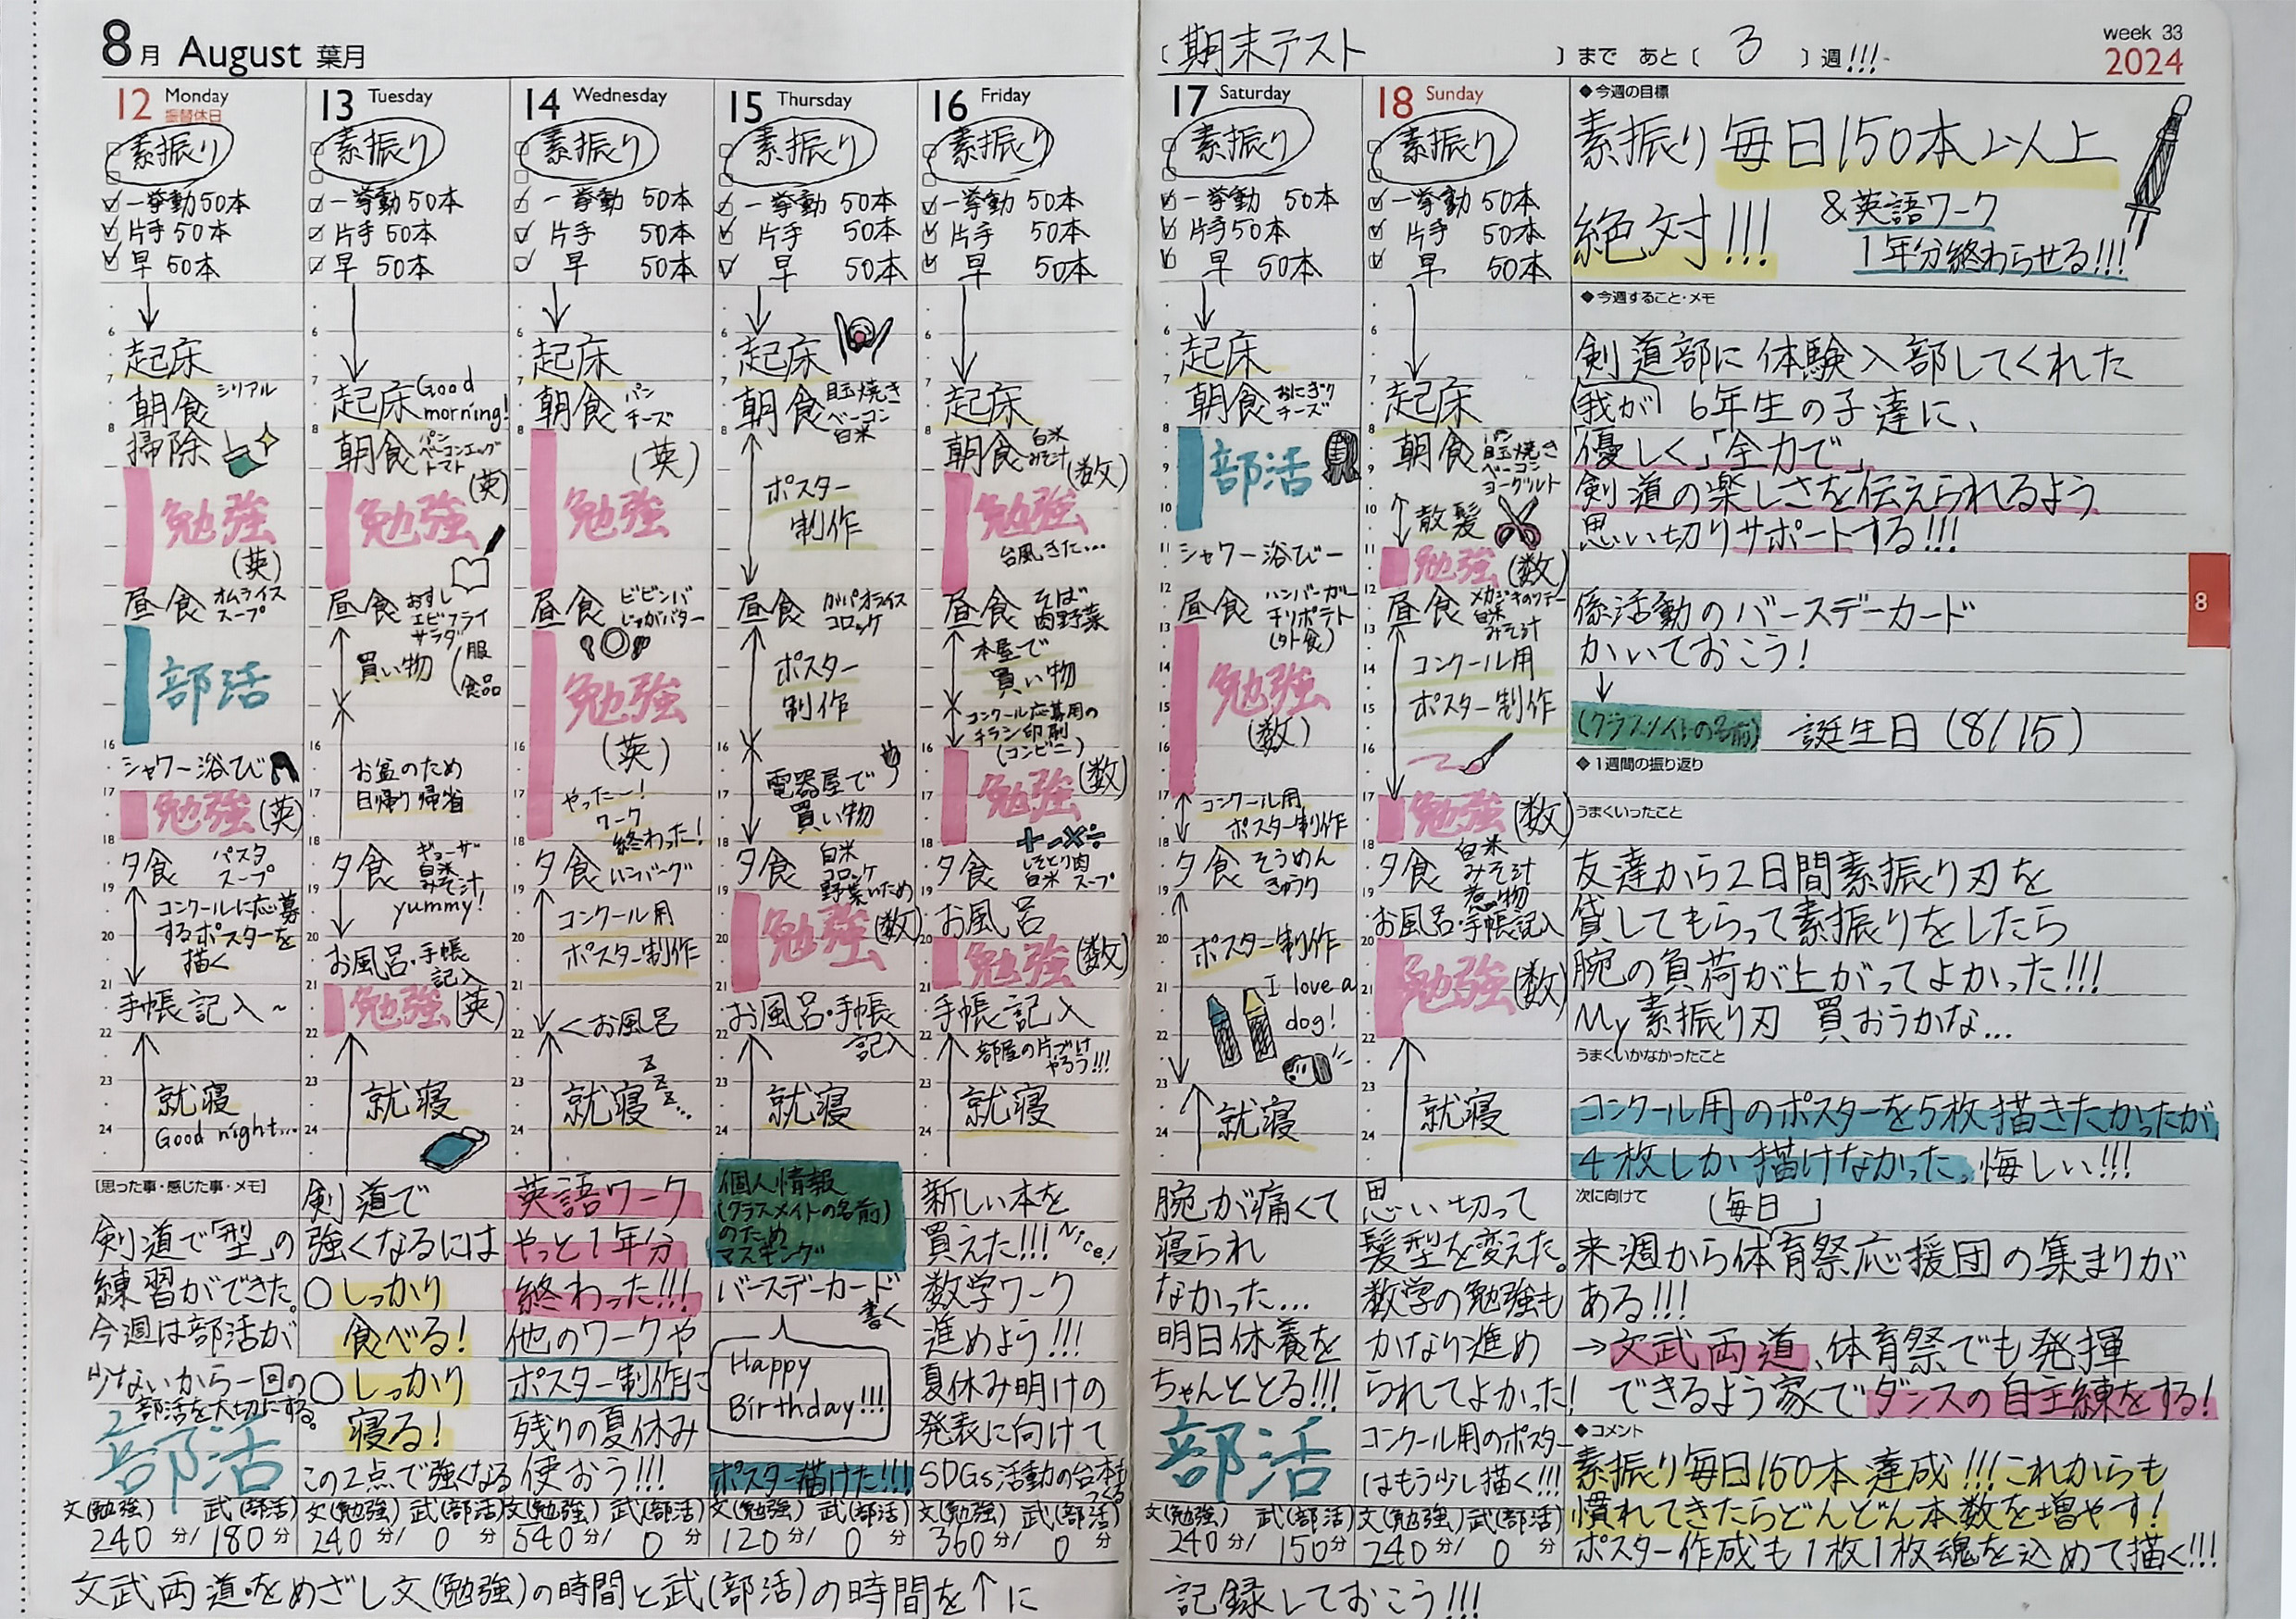 8月 August 葉月
12 Monday
振替休日
素振り
一挙動50本
片手50本
早 50本
起床
朝食 シリアル
掃除
勉強
(英)
昼食 オムライス
スープ
部活
シャワー浴び
勉強(英)
夕食 パスタ
スープ
コンクールに応募
するポスターを
描く
手帳記入~
就寝
Good night...
[思った事・感じた事・メモ]
剣道で「型」の
練習ができた。
今週は部活が
少ないから一回の
部活を大切にする。
部活
文(勉強) 武(部活)
240分/180分
13 Tuesday
素振り
一挙動50本
片手50本
早 50本
起床 Good
morning!
朝食 パン
ベーコンエッグ
トマト
(英)
勉強
昼食 おすし
エビフライ
サラダ
買い物 (服
食品
お盆のため
日帰り帰省
夕食 ギョーザ
白米
みそ汁
yummy!
お風呂・手帳
記入
勉強(英)
就寝
剣道で
強くなるには
○しっかり
食べる!
○しっかり
寝る!
この2点で強くなる
文(勉強) 武(部活)
240分/0分
14 Wednesday
素振り
一挙動 50本
片手 50本
早 50本
起床
朝食 パン
チーズ
(英)
勉強
昼食 ビビンバ
じゃがバター
勉強
(英)
やったー!
ワーク
終わった!
夕食 ハンバーグ
コンクール用
ポスター制作
<お風呂
就寝 zzz...
英語ワーク
やっと1年分
終わった!!!
他のワークや
ポスター制作に
残りの夏休み
使おう!!!
文(勉強) 武(部活)
540分/0分
15 Thursday
素振り
一挙動 50本
片手 50本
早 50本
起床
朝食 目玉焼き
ベーコン
白米
ポスター
制作
昼食 ガパオライス
コロッケ
ポスター
制作
電器屋で
買い物
夕食 白米
コロッケ
野菜いため
勉強(数)
お風呂・手帳
記入
就寝
個人情報
(クラスメイトの名前)
のため
マスキング
バースデーカード
書く
Happy
Birthday!!!
ポスター描けた!!!
文(勉強) 武(部活)
120分/0分
16 Friday
素振り
一挙動 50本
片手 50本
早 50本
起床
朝食 白米
みそ汁
(数)
勉強
台風きた...
昼食 そば
肉野菜
本屋で
買い物
コンクール応募用の
チラシ印刷
(コンビニ)
勉強(数)
+-×÷
夕食
白米 スープ
お風呂
勉強(数)
手帳記入
部屋の片づけ
やろう!!!
就寝
新しい本を
買えた!!! Nice!
数学ワーク
進めよう!!!
夏休み明けの
発表に向けて
SDGs活動の台本も
つくる
文(勉強) 武(部活)
360分/0分
文武両道をめざし文(勉強)の時間と武(部活)の時間を↑に
[期末テスト]まで あと[3]週!!!
week 33
2024
17 Saturday
素振り
一挙動 50本
片手50本
早 50本
起床
朝食 おにぎり
チーズ
部活
シャワー浴びー
昼食 ハンバーガー
チリポテト
(外食)
勉強
(数)
コンクール用
ポスター制作
夕食 そうめん
きゅうり
ポスター制作
I love a
dog!
就寝
腕が痛くて
寝られ
なかった...
明日休養を
ちゃんととる!!!
部活
文(勉強) 武(部活)
240分/150分
18 Sunday
素振り
一挙動 50本
片手 50本
早 50本
起床
朝食 パン
目玉焼き
ベーコン
ヨーグルト
散髪
勉強(数)
昼食 メカジキのソテー
白米
みそ汁
コンクール用
ポスター制作
勉強(数)
夕食 白米
みそ汁
煮物
お風呂・手帳記入
勉強(数)
就寝
思い切って
髪型を変えた。
数学の勉強も
かなり進め
られてよかった!
コンクール用のポスター
はもう少し描く!!!
文(勉強) 武(部活)
240分/0分
◆今週の目標
素振り毎日150本以上
絶対!!!
&英語ワーク
1年分終わらせる!!!
◆今週すること・メモ
剣道部に体験入部してくれた
我が 6年生の子達に、
「優しく」「全力で」
剣道の楽しさを伝えられるよう
思い切りサポートする!!!
係活動のバースデーカード
かいておこう!
↓
(クラスメイトの名前) 誕生日(8/15)
◆1週間の振り返り
うまくいったこと
友達から2日間素振り刃を
貸してもらって素振りをしたら
腕の負荷が上がってよかった!!!
My素振り刃 買おうかな...
うまくいかなかったこと
コンクール用のポスターを5枚描きたかったが
4枚しか描けなかった。悔しい!!!
次に向けて
(毎日)
来週から体育祭応援団の集まりが
ある!!!
→文武両道、体育祭でも発揮
できるよう家でダンスの自主練をする!
◆コメント
素振り毎日150本達成!!!これからも
慣れてきたらどんどん本数を増やす!
ポスター作成も1枚1枚魂を込めて描く!!!
記録しておこう!!!
8